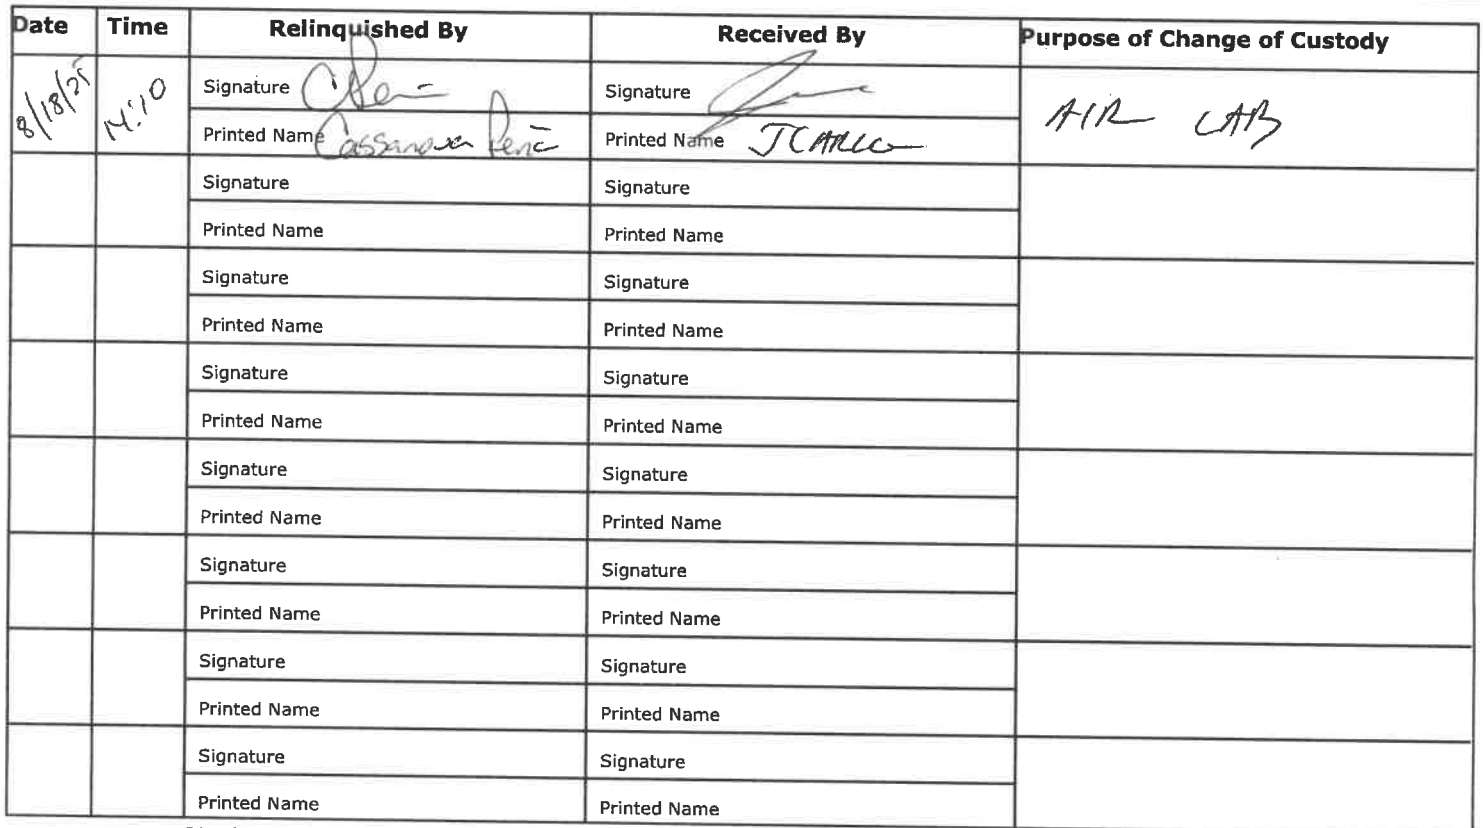 Date Time Relinquished By Received By Purpose of Change of Custody
8/18/25 14:10 Signature Signature AIR LAB
Printed Name Cassanova Printed Name
Signature Signature
Printed Name Printed Name
Signature Signature
Printed Name Printed Name
Signature Signature
Printed Name Printed Name
Signature Signature
Printed Name Printed Name
Signature Signature
Printed Name Printed Name
Signature Signature
Printed Name Printed Name
Signature Signature
Printed Name Printed Name